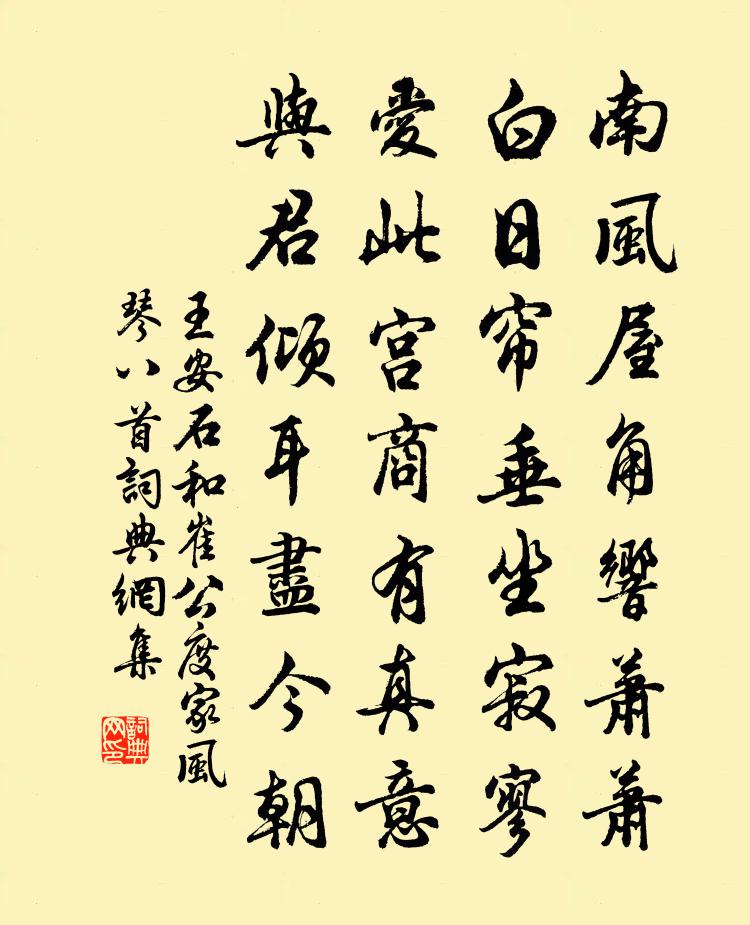 南風屋角響蕭蕭
白日帘垂坐寂寥
愛此宫商有真意
與君傾耳盡今朝
王安石和崔公度家風
琴八首詞典網集
詞典網印